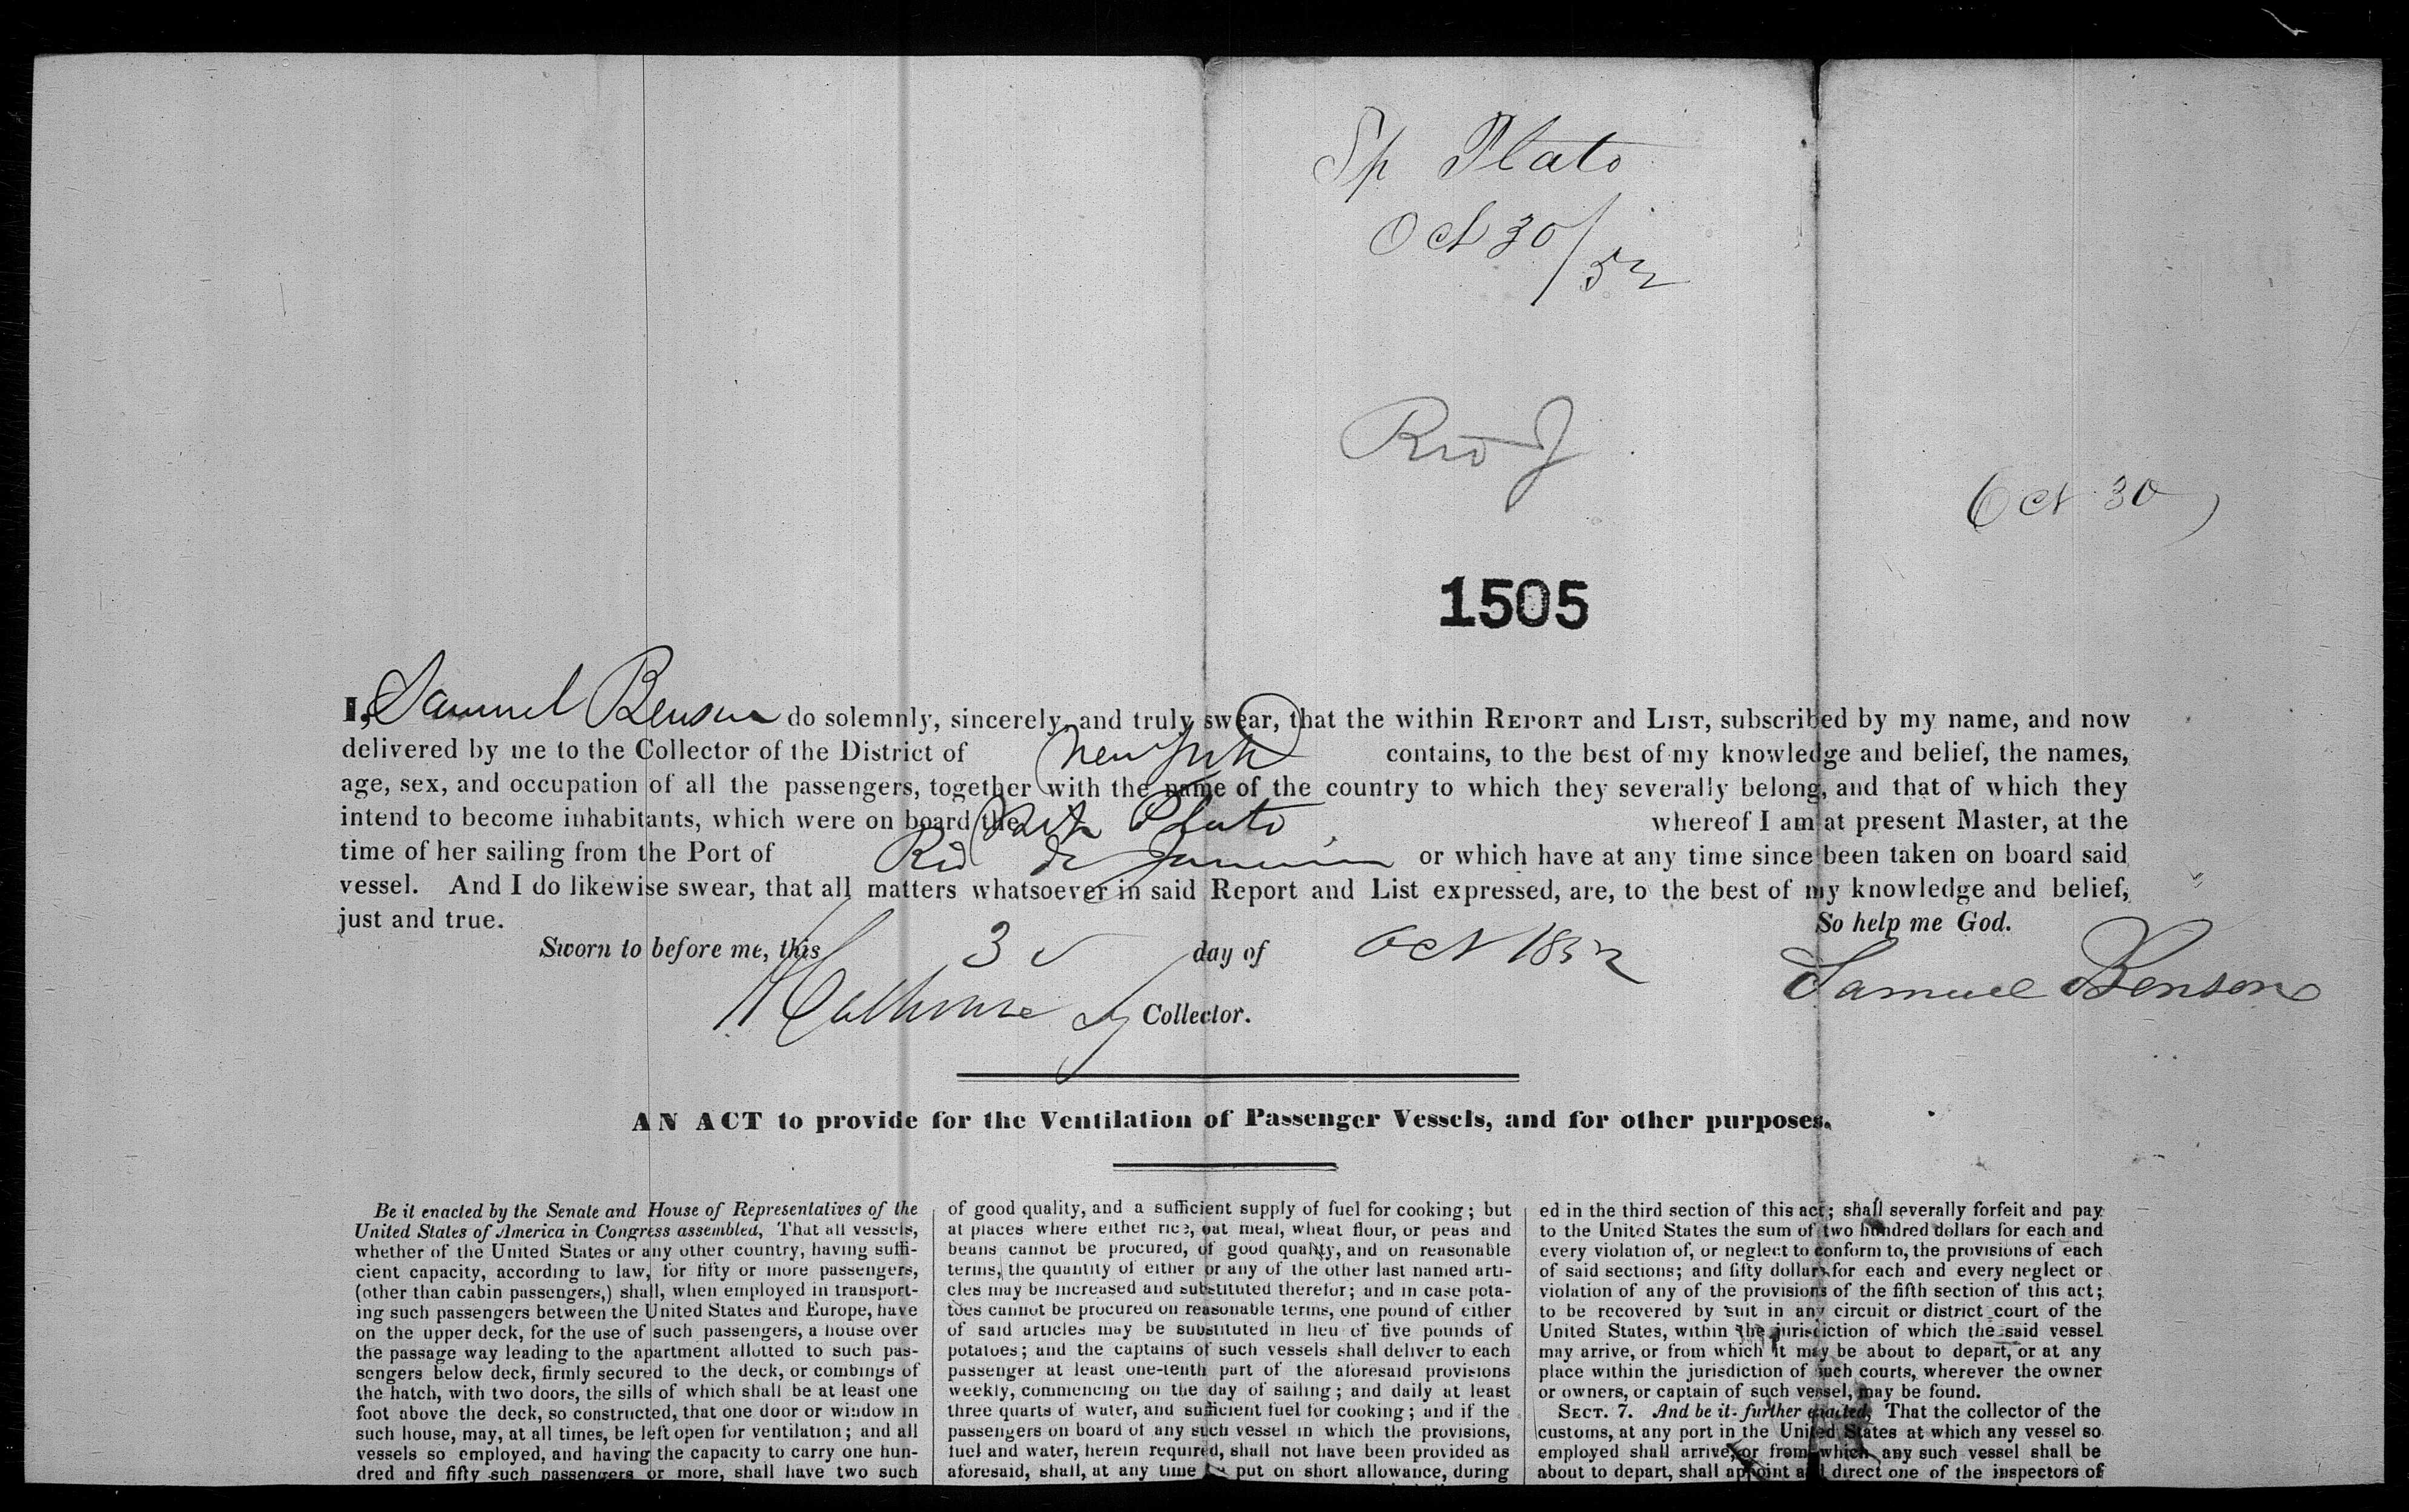 Sp Plato
Oct 30/52
Rio J
Oct 30
1505
I, Samuel Benson do solemnly, sincerely, and truly swear, that the within REPORT and LIST, subscribed by my name, and now
delivered by me to the Collector of the District of New York contains, to the best of my knowledge and belief, the names,
age, sex, and occupation of all the passengers, together with the name of the country to which they severally belong, and that of which they
intend to become inhabitants, which were on board the Plato whereof I am at present Master, at the
time of her sailing from the Port of Rio de Janeiro or which have at any time since been taken on board said
vessel. And I do likewise swear, that all matters whatsoever in said Report and List expressed, are, to the best of my knowledge and belief,
just and true. So help me God.
Sworn to before me, this 30 day of Oct 1852
Samuel Benson
Collector.
AN ACT to provide for the Ventilation of Passenger Vessels, and for other purposes.
Be it enacted by the Senate and House of Representatives of the
United States of America in Congress assembled, That all vessels,
whether of the United States or any other country, having suffi-
cient capacity, according to law, for fifty or more passengers,
(other than cabin passengers,) shall, when employed in transport-
ing such passengers between the United States and Europe, have
on the upper deck, for the use of such passengers, a house over
the passage way leading to the apartment allotted to such pas-
sengers below deck, firmly secured to the deck, or combings of
the hatch, with two doors, the sills of which shall be at least one
foot above the deck, so constructed, that one door or window in
such house, may, at all times, be left open for ventilation; and all
vessels so employed, and having the capacity to carry one hun-
dred and fifty such passengers or more, shall have two such
of good quality, and a sufficient supply of fuel for cooking; but
at places where either rice, oat meal, wheat flour, or peas and
beans cannot be procured, of good quality, and on reasonable
terms, the quantity of either or any of the other last named arti-
cles may be increased and substituted therefor; and in case pota-
toes cannot be procured on reasonable terms, one pound of either
of said articles may be substituted in lieu of five pounds of
potatoes; and the captains of such vessels shall deliver to each
passenger at least one-tenth part of the aforesaid provisions
weekly, commencing on the day of sailing; and daily at least
three quarts of water, and sufficient fuel for cooking; and if the
passengers on board of any such vessel in which the provisions,
fuel and water, herein required, shall not have been provided as
aforesaid, shall, at any time be put on short allowance, during
ed in the third section of this act; shall severally forfeit and pay
to the United States the sum of two hundred dollars for each and
every violation of, or neglect to conform to, the provisions of each
of said sections; and fifty dollars for each and every neglect or
violation of any of the provisions of the fifth section of this act;
to be recovered by suit in any circuit or district court of the
United States, within the jurisdiction of which the said vessel
may arrive, or from which it may be about to depart, or at any
place within the jurisdiction of such courts, wherever the owner
or owners, or captain of such vessel, may be found.
SECT. 7. And be it further enacted, That the collector of the
customs, at any port in the United States at which any vessel so
employed shall arrive, or from which any such vessel shall be
about to depart, shall appoint and direct one of the inspectors of